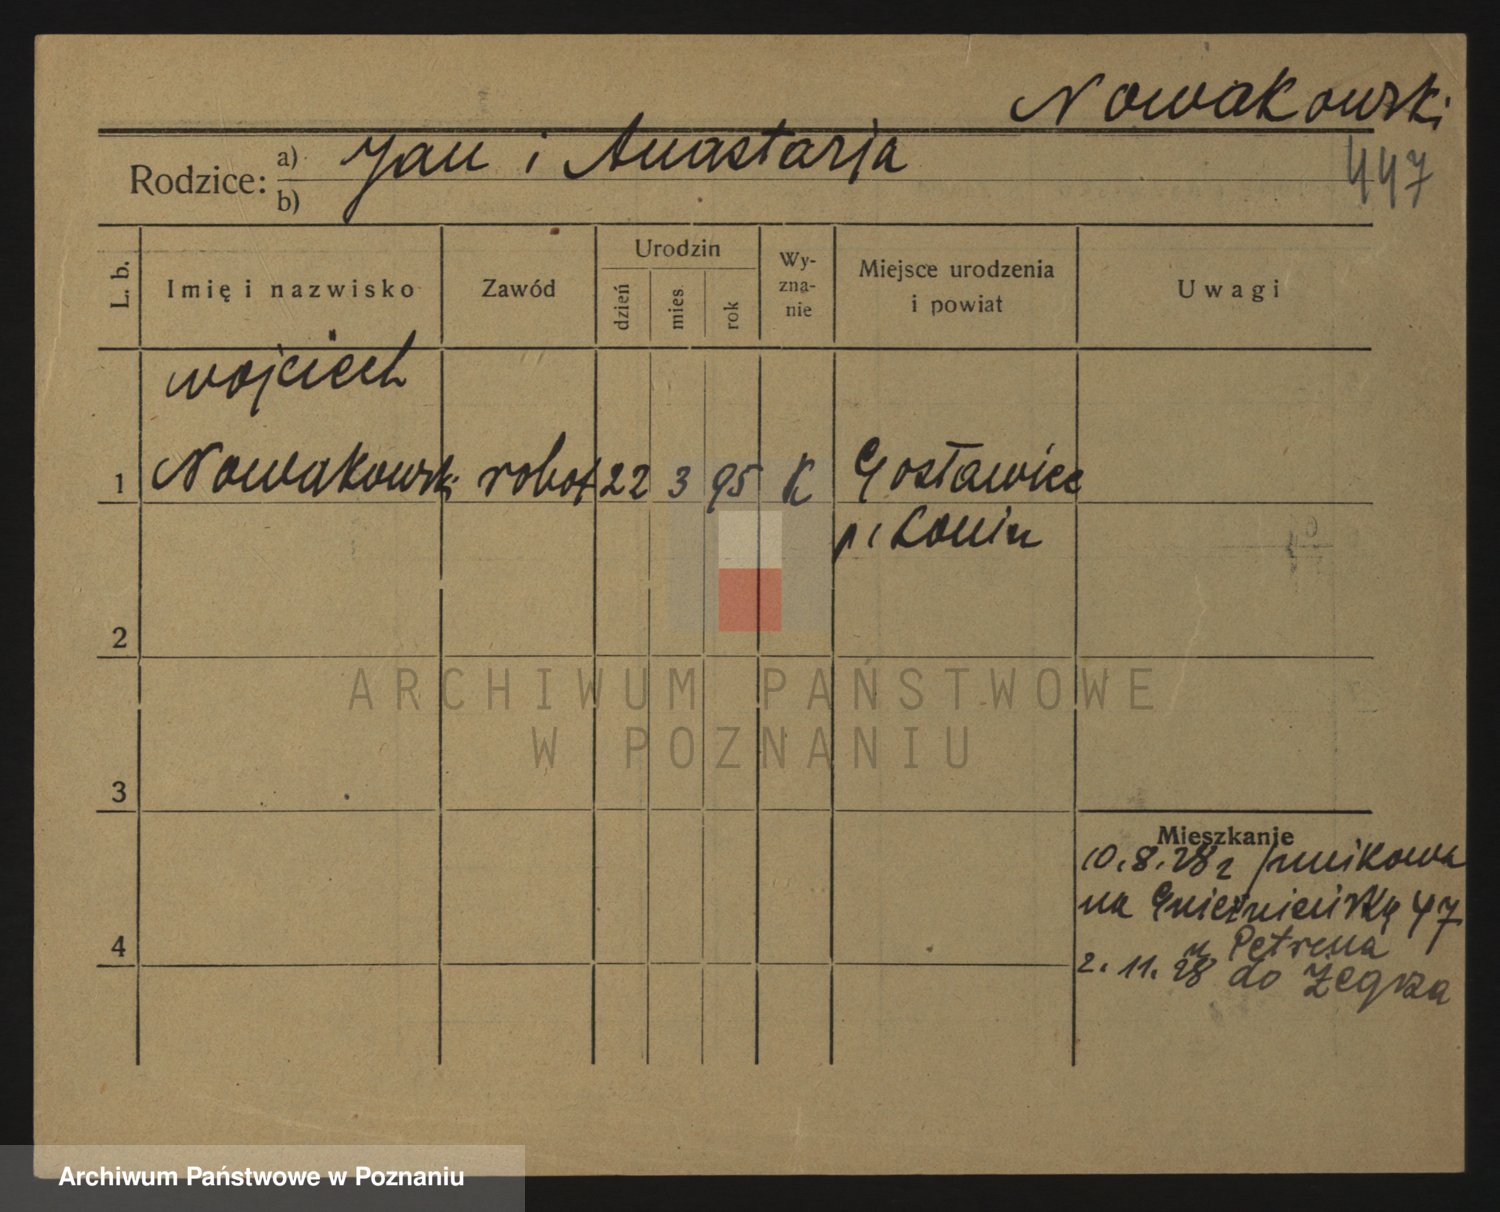 Nowakowski
447
Rodzice: a) Jan i Anastazja
b)
L. b. Imię i nazwisko Zawód Urodzin dzień mies. rok Wy-zna-nie Miejsce urodzenia i powiat Uwagi
Wojciech
1 Nowakowski robot 22 3 95 K Gosławice
p. Konin
2
ARCHIWUM PAŃSTWOWE
W POZNANIU
3
Mieszkanie
10.8.28 z Junikowa
na Gnieźnieńską 47
4 u Petrena
2.11.28 do Żegrza
Archiwum Państwowe w Poznaniu